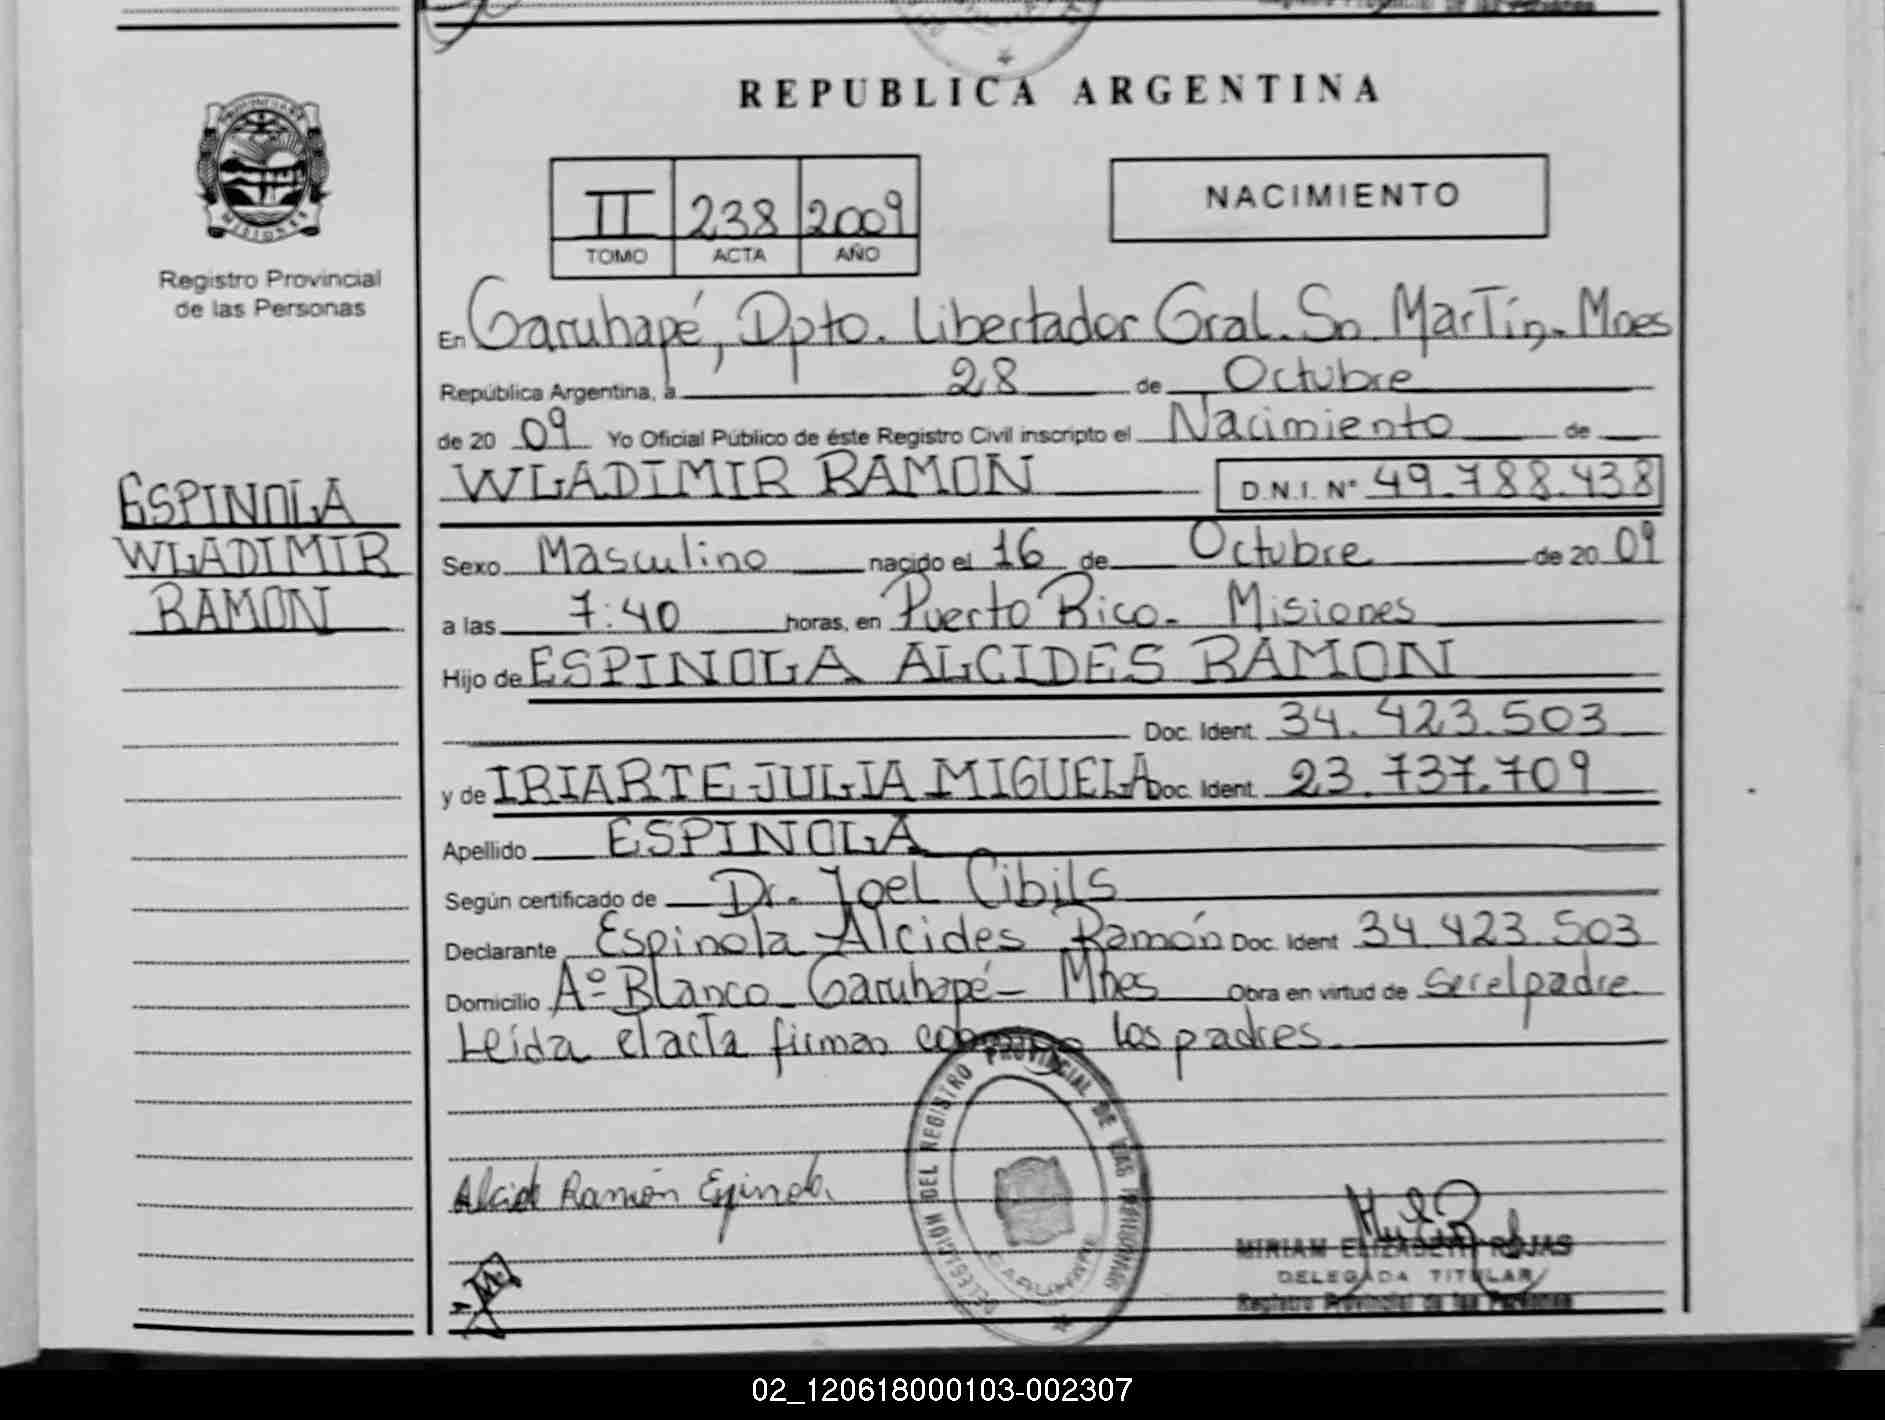 REPUBLICA ARGENTINA
PROVINCIA DE
MISIONES
Registro Provincial
de las Personas
II 238 2009
TOMO ACTA AÑO
NACIMIENTO
En Garuhapé, Dpto. Libertador Gral. Sn. Martín. Mnes
República Argentina, a 28 de Octubre
de 20 09 Yo Oficial Público de éste Registro Civil inscripto el Nacimiento de
WLADIMIR RAMON D.N.I. N° 49.788.438
ESPINOLA
WLADIMIR
RAMON
Sexo Masculino nacido el 16 de Octubre de 20 09
a las 7:40 horas, en Puerto Rico. Misiones
Hijo de ESPINOLA ALCIDES RAMON
Doc. Ident. 34.423.503
y de IRIARTE JULIA MIGUELA Doc. Ident. 23.737.709
Apellido ESPINOLA
Según certificado de Dr. Joel Cibils
Declarante Espinola Alcides Ramón Doc. Ident 34.423.503
Domicilio Aº Blanco Garuhapé - Mnes Obra en virtud de ser el padre
Leída el acta firman los padres.
DELEGACION DEL REGISTRO PROVINCIAL DE LAS PERSONAS
GARUHAPE
Alcide Ramón Espinola
MIRIAM ELIZABETH ROJAS
DELEGADA TITULAR
Registro Provincial de las Personas
02_120618000103-002307